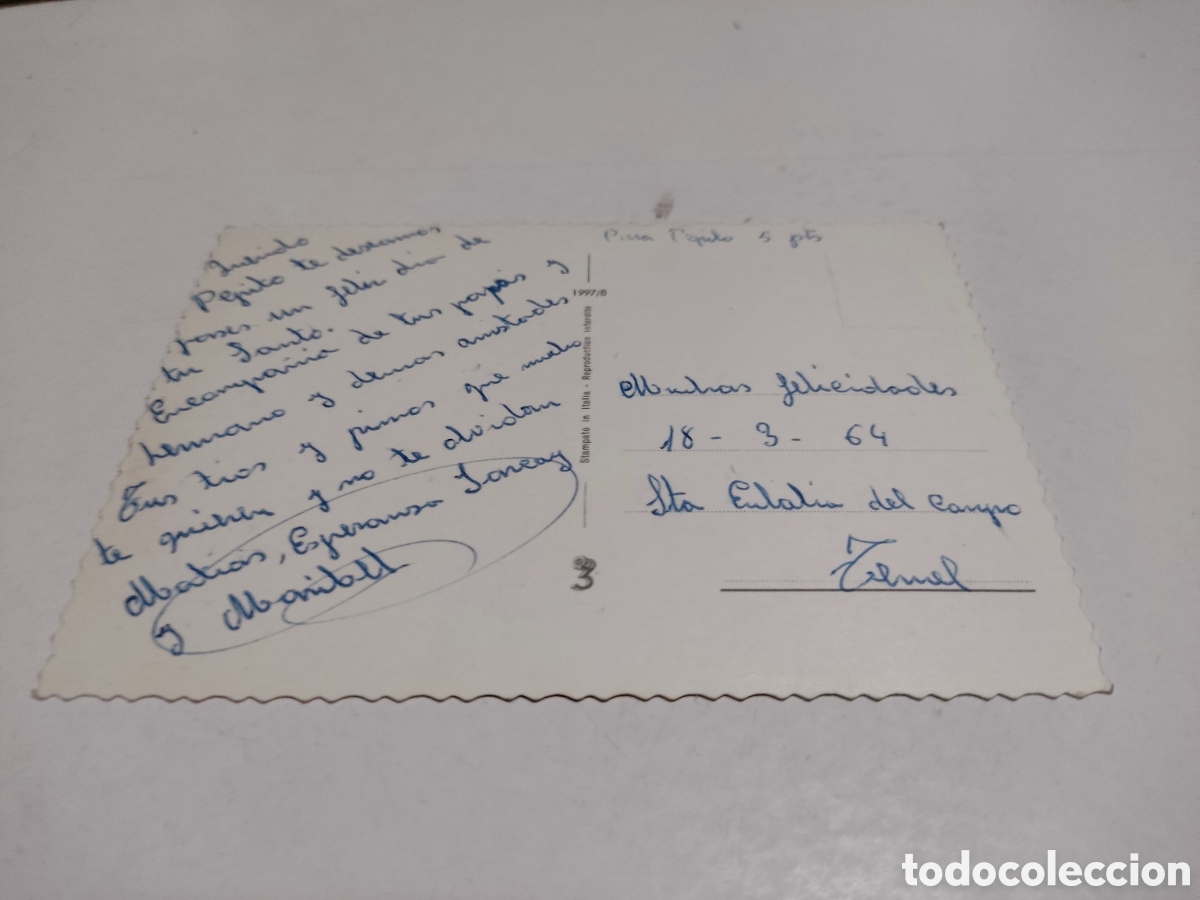 Querido
Pepito te deseamos
pases un feliz dia de
tu Santo.
Encompañia de tus papás y
hermano y demas amistades
Tus tios y primos que mucho
te quieren y no te olvidan
Matias, Esperanza
y Maribel
Para Pepito 5 pts
1997/8
Stampato in Italia - Reproduction interdite
3
Muchas felicidades
18 - 3 - 64
Sta Eulalia del Campo
Teruel
todocoleccion